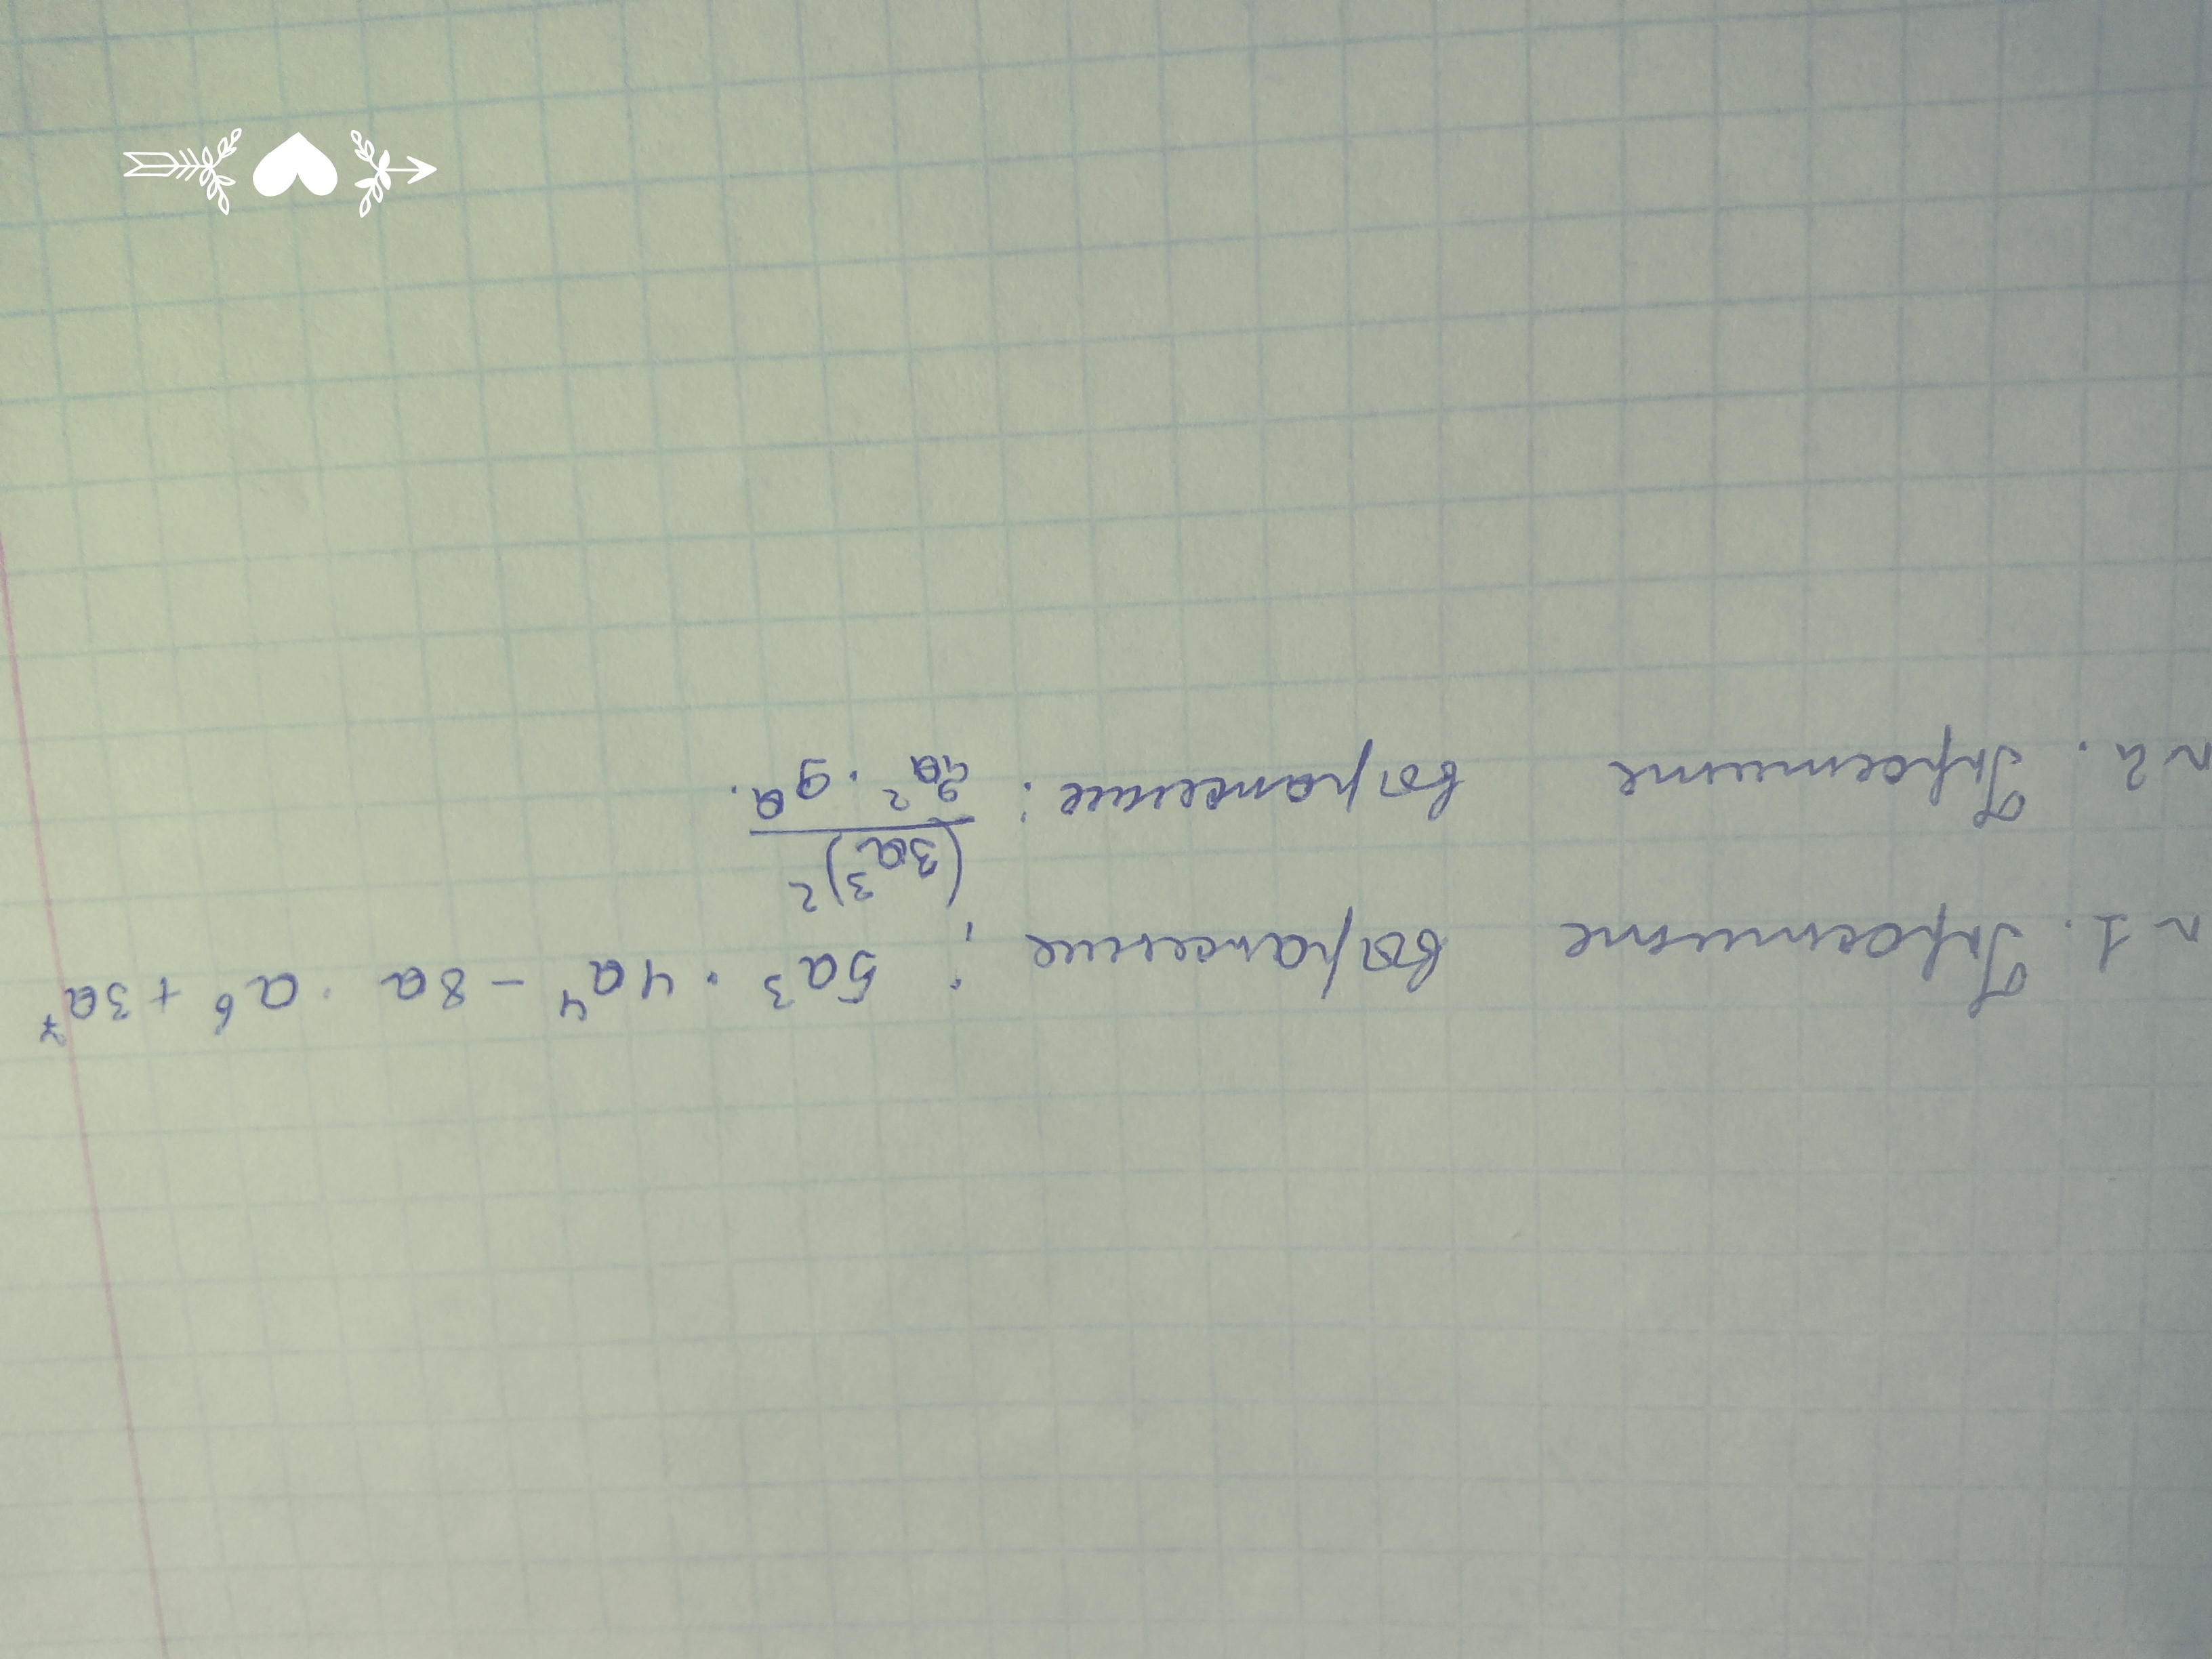 n 1. Упростите выражение: 5a³ · 4a⁴ − 8a · a⁶ + 3a⁷
n 2. Упростите выражение:
(3a³)²
· 9a.